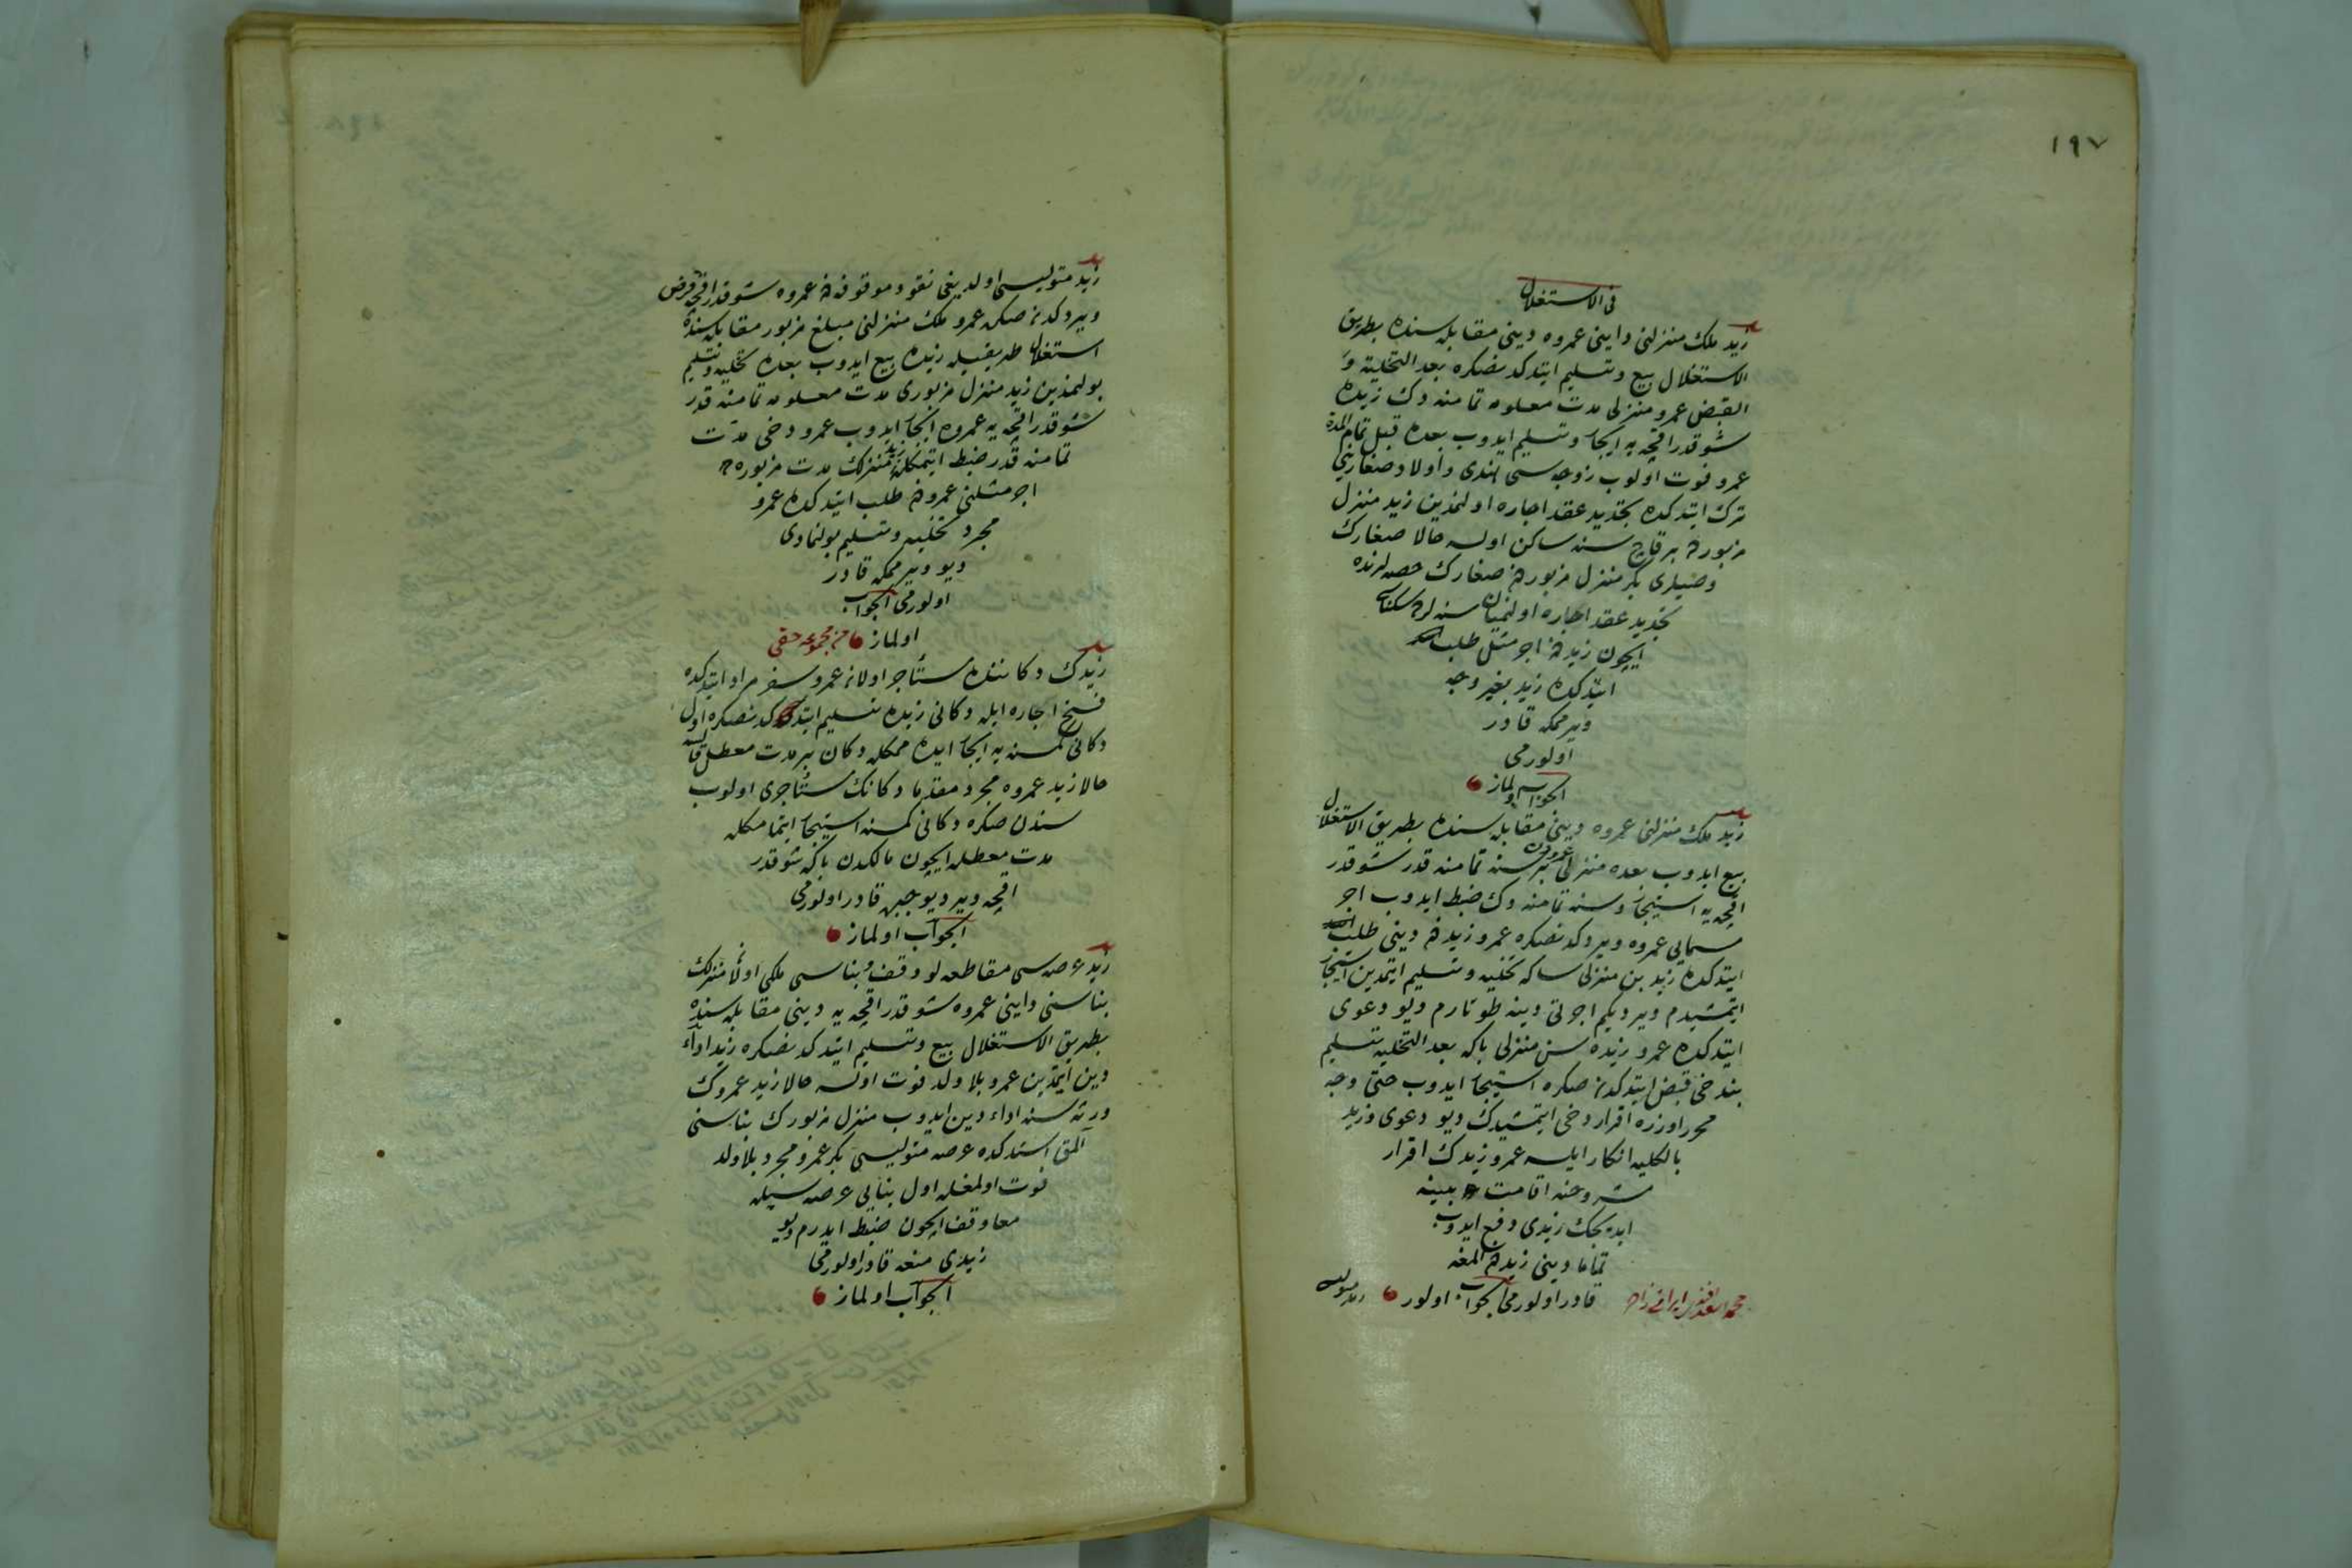 ١٩٧
فی الاستغلال
زید ملک منزلنی داینی عمروه دینی مقابله سنده بطریق
الاستغلال بیع وتسلیم ایتدکدنصکره بعد التخلیة و
القبض عمرو منزلی مدت معلومه تمامنه دک زیده
شو قدر اقچه یه ایجار وتسلیم ایدوب بعده قبل تمام المدة
عمرو فوت اولوب زوجه سی هندی واولاد صغارینی
ترک ایتدکده تجدید عقد اجاره اولنمدین زید منزل
مزبورده بر قاچ سنه ساکن اولسه حالا صغارک
وصیلری بکر منزل مزبورده صغارک حصه لرنده
تجدید عقد اجاره اولنمیان سنه لرده سکناسی
ایچون زیددن اجر مثل طلب
ایتدکده زید بغیر وجه
ویرممکه قادر
اولورمی
الجواب اولماز
زید ملک منزلنی عمروه دینی مقابله سنده بطریق الاستغلال
بیع ایدوب بعده منزلی عمرودن بر سنه تمامنه قدر شو قدر
اقچه یه استیجار وسنه تمامنه دک ضبط ایدوب اجر
مسمایی عمروه ویردکدنصکره عمرو زیددن دینی طلب
ایتدکده زید بن منزلی سکا تخلیه وتسلیم ایتمدین استیجار
ایتمشیدم ویردیکم اجرتی دینه طوتارم دیو دعوی
ایتدکده عمرو زیده سن منزلی بکا بعد التخلیه تسلیم
بندخی قبض ایتدکدن صکره استیجار ایدوب حتی وجه
محرر اوزره اقرار دخی ایتمشیدک دیو دعوی وزید
بالکلیه انکار ایلسه عمرو زیدک اقرار
مشروحنه اقامت بینه
ایده جک زیدی دفع ایدوب
تماما دینی زیددن المغه
قادر اولورمی الجواب اولور
زید متولیسی اولدیغی نقود موقوفه دن عمروه شو قدر اقچه قرض
ویردکدن صکره عمرو ملک منزلنی مبلغ مزبور مقابله سنده
استغلال طریقیله زیده بیع ایدوب بعده تخلیه وتسلیم
بولنمدین زید منزل مزبوری مدت معلومه تمامنه قدر
شو قدر اقچه یه عمروه ایجار ایدوب عمرو دخی مدت
تمامنه قدر ضبط ایتمکله زید منزلک مدت مزبوره ده
اجر مثلنی عمرودن طلب ایتدکده عمرو
مجرد تخلیه وتسلیم بولنمادی
دیو ویرممکه قادر
اولورمی الجواب
اولماز من مجموعه حقی
زیدک دکاننده مستأجر اولان عمرو سفر مراد ایتدکده
فسخ اجاره ایله دکانی زیده تسلیم ایتدکدنصکره اول
دکانی کمسنه یه ایجار ایده ممکله دکان بر مدت معطل قالسه
حالا زید عمروه مجرد مقدما دکانک مستأجری اولوب
سندن صکره دکانی کمسنه استیجار ایتمامکله
مدت معطله ایچون مالکدن بکا شو قدر
اقچه ویر دیو جبره قادر اولورمی
الجواب اولماز
زید عرصه سی مقاطعه لو وقف وبناسی ملکی اولان منزلک
بناسنی داینی عمروه شو قدر اقچه یه دینی مقابله سنده
بطریق الاستغلال بیع وتسلیم ایتدکدنصکره زید اداء
دین ایتمدین عمرو بلا ولد فوت اولسه حالا زید عمروک
ورثه سنه اداء دین ایدوب منزل مزبورک بناسنی
آلمق استدکده عرصه متولیسی بکر عمرو مجرد بلا ولد
فوت اولمغله اول بنایی عرصه سیله
معا وقف ایچون ضبط ایدرم دیو
زیدی منعه قادر اولورمی
الجواب اولماز